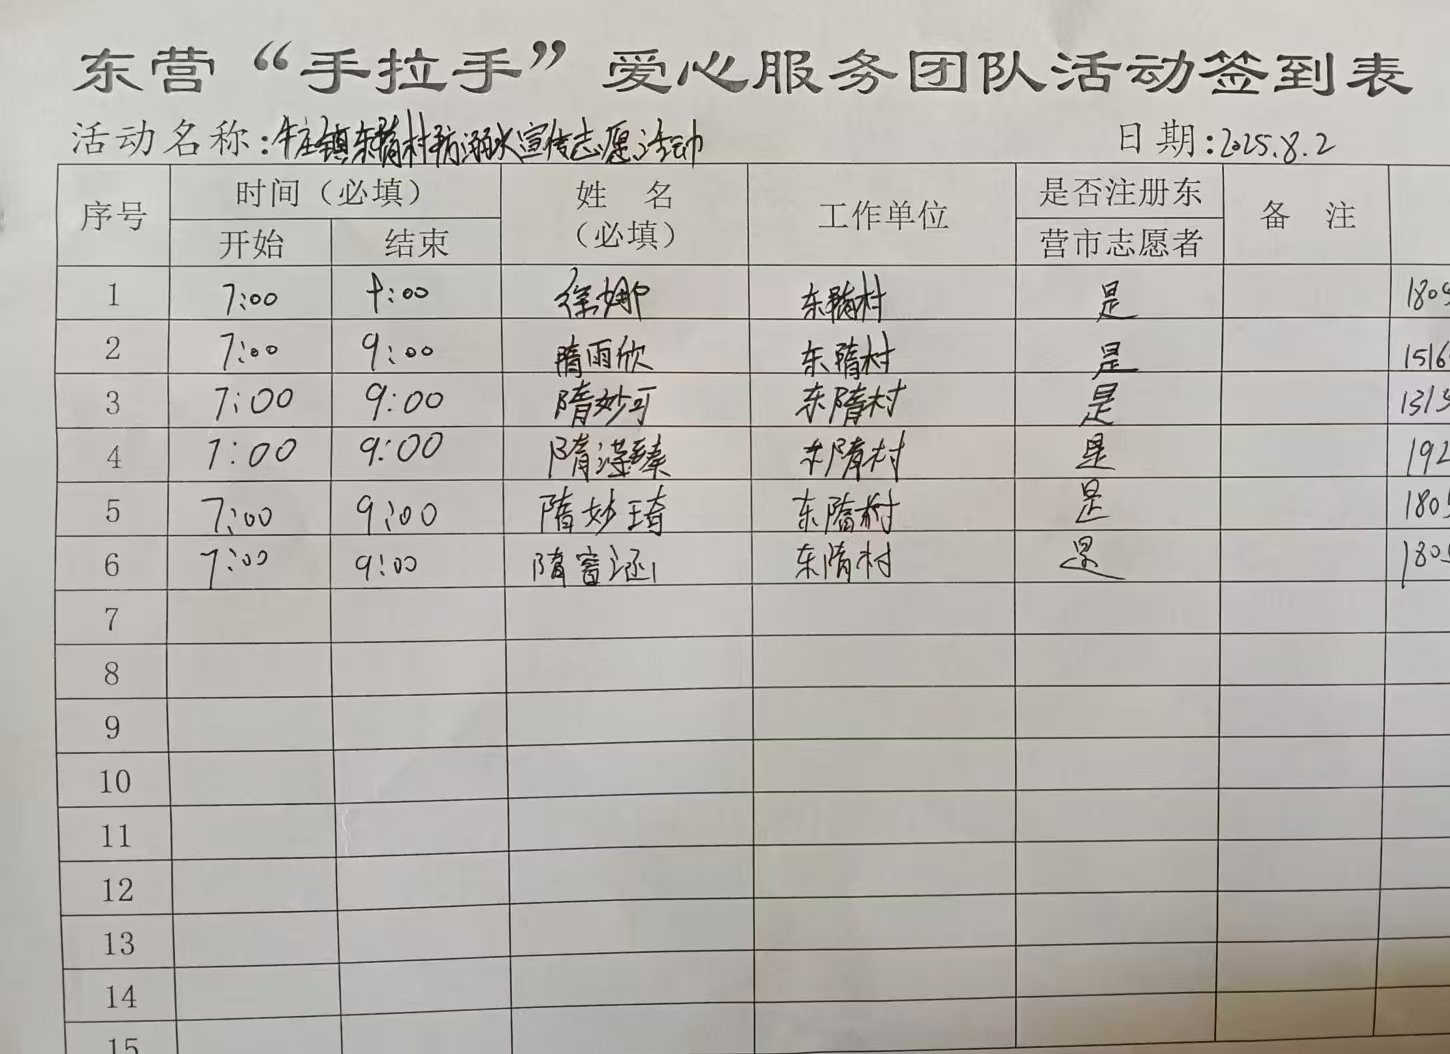 东营“手拉手”爱心服务团队活动签到表
活动名称:牛庄镇东隋村防溺水宣传志愿活动 日期:2025.8.2
序号 时间（必填） 姓名（必填） 工作单位 是否注册东营市志愿者 备注
开始 结束
1 7:00 9:00 徐娜 东隋村 是 180
2 7:00 9:00 隋雨欣 东隋村 是 1516
3 7:00 9:00 隋妙可 东隋村 是 1313
4 7:00 9:00 隋 臻 东隋村 是 192
5 7:00 9:00 隋妙琦 东隋村 是 1805
6 7:00 9:00 隋 涵 东隋村 是 1805
7
8
9
10
11
12
13
14
15